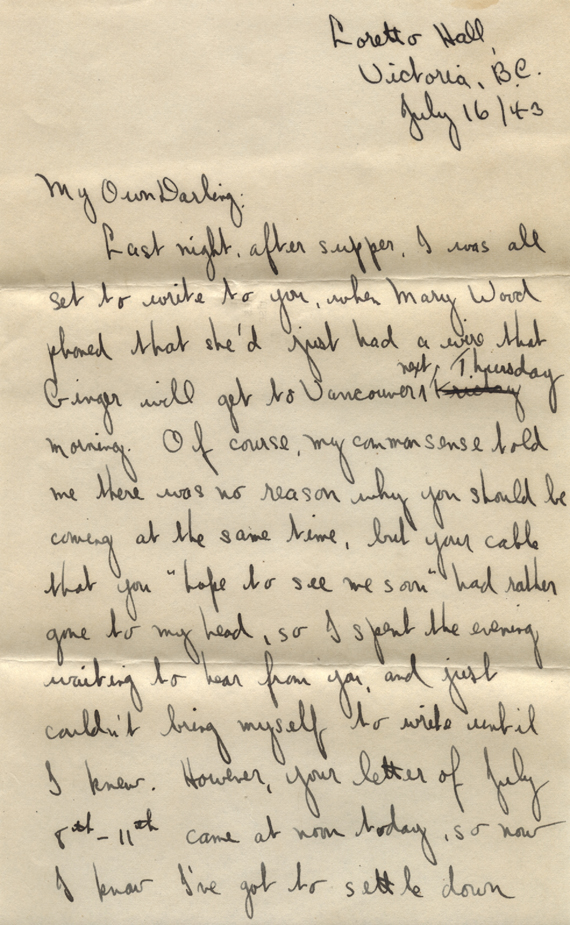 Loretto Hall,
Victoria, B.C.
July 16/43
My Own Darling:
Last night, after supper, I was all
set to write to you, when Mary Wood
phoned that she'd just had a wire that
next Thursday
Ginger will get to Vancouver Friday
morning. Of course, my common sense told
me there was no reason why you should be
coming at the same time, but your cable
that you "hope to see me soon" had rather
gone to my head, so I spent the evening
waiting to hear from you, and just
couldn't bring myself to write until
I knew. However, your letter of July
8th - 11th came at noon today, so now
I know I've got to settle down